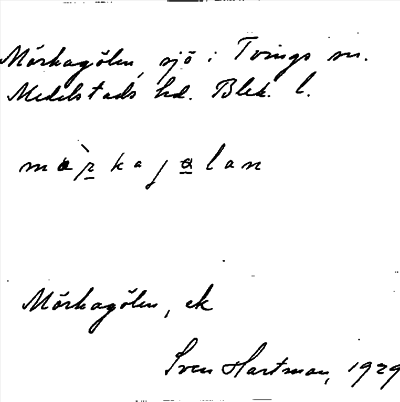 Mörkagölen, sjö i Tvings sn.
Medelstads hd. Blek. l.
mörkajølan
Mörkagölen, ek
Sven Hartman, 1929